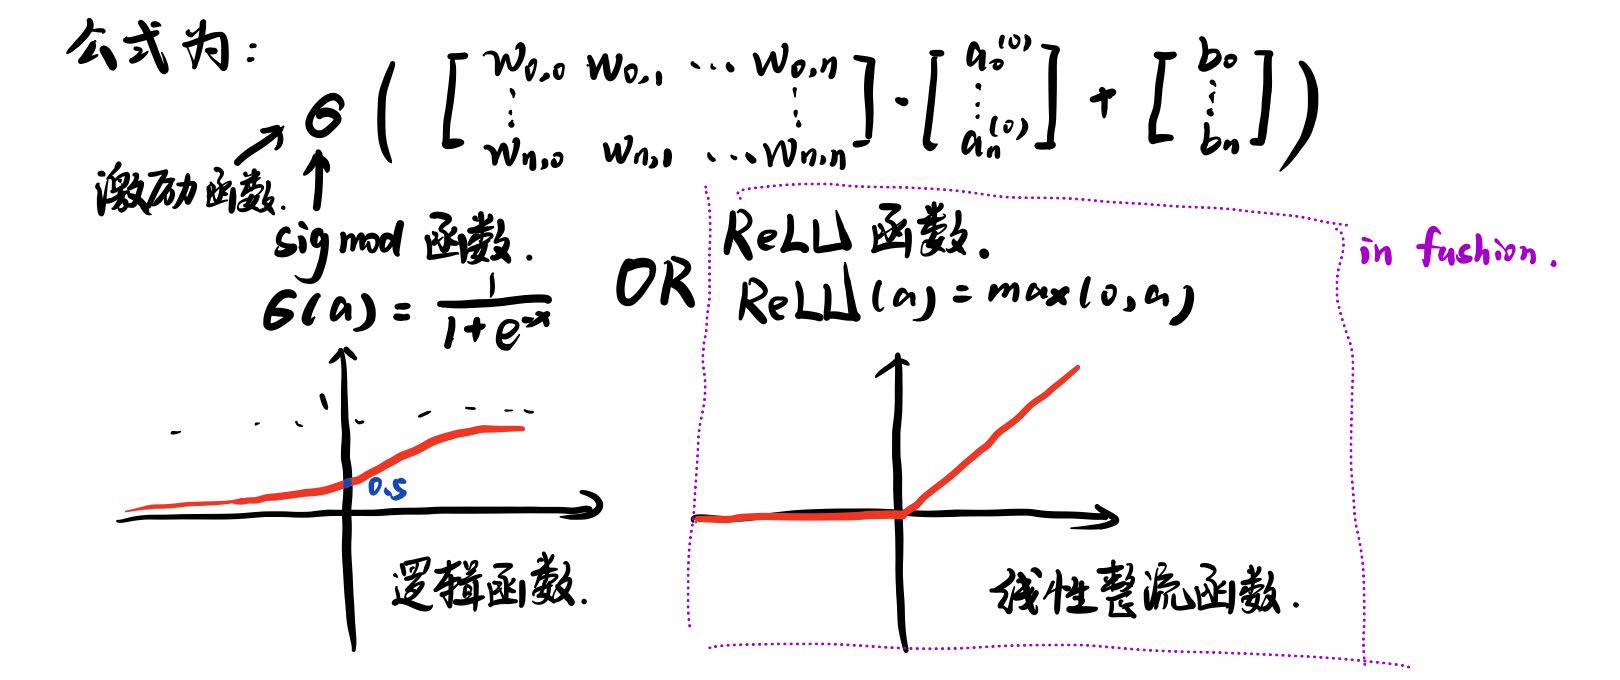 公式为:
σ ( [ w0,0 w0,1 ... w0,n ⋮ ⋮ wn,0 wn,1 ... wn,n ] · [ a0^(0) ⋮ an^(0) ] + [ b0 ⋮ bn ] )
激励函数.
sigmod 函数.
σ(a) = 1 / 1 + e^-x
OR
ReLU 函数.
ReLU(a) = max(0, a)
in fushion.
1
0.5
逻辑函数.
线性整流函数.